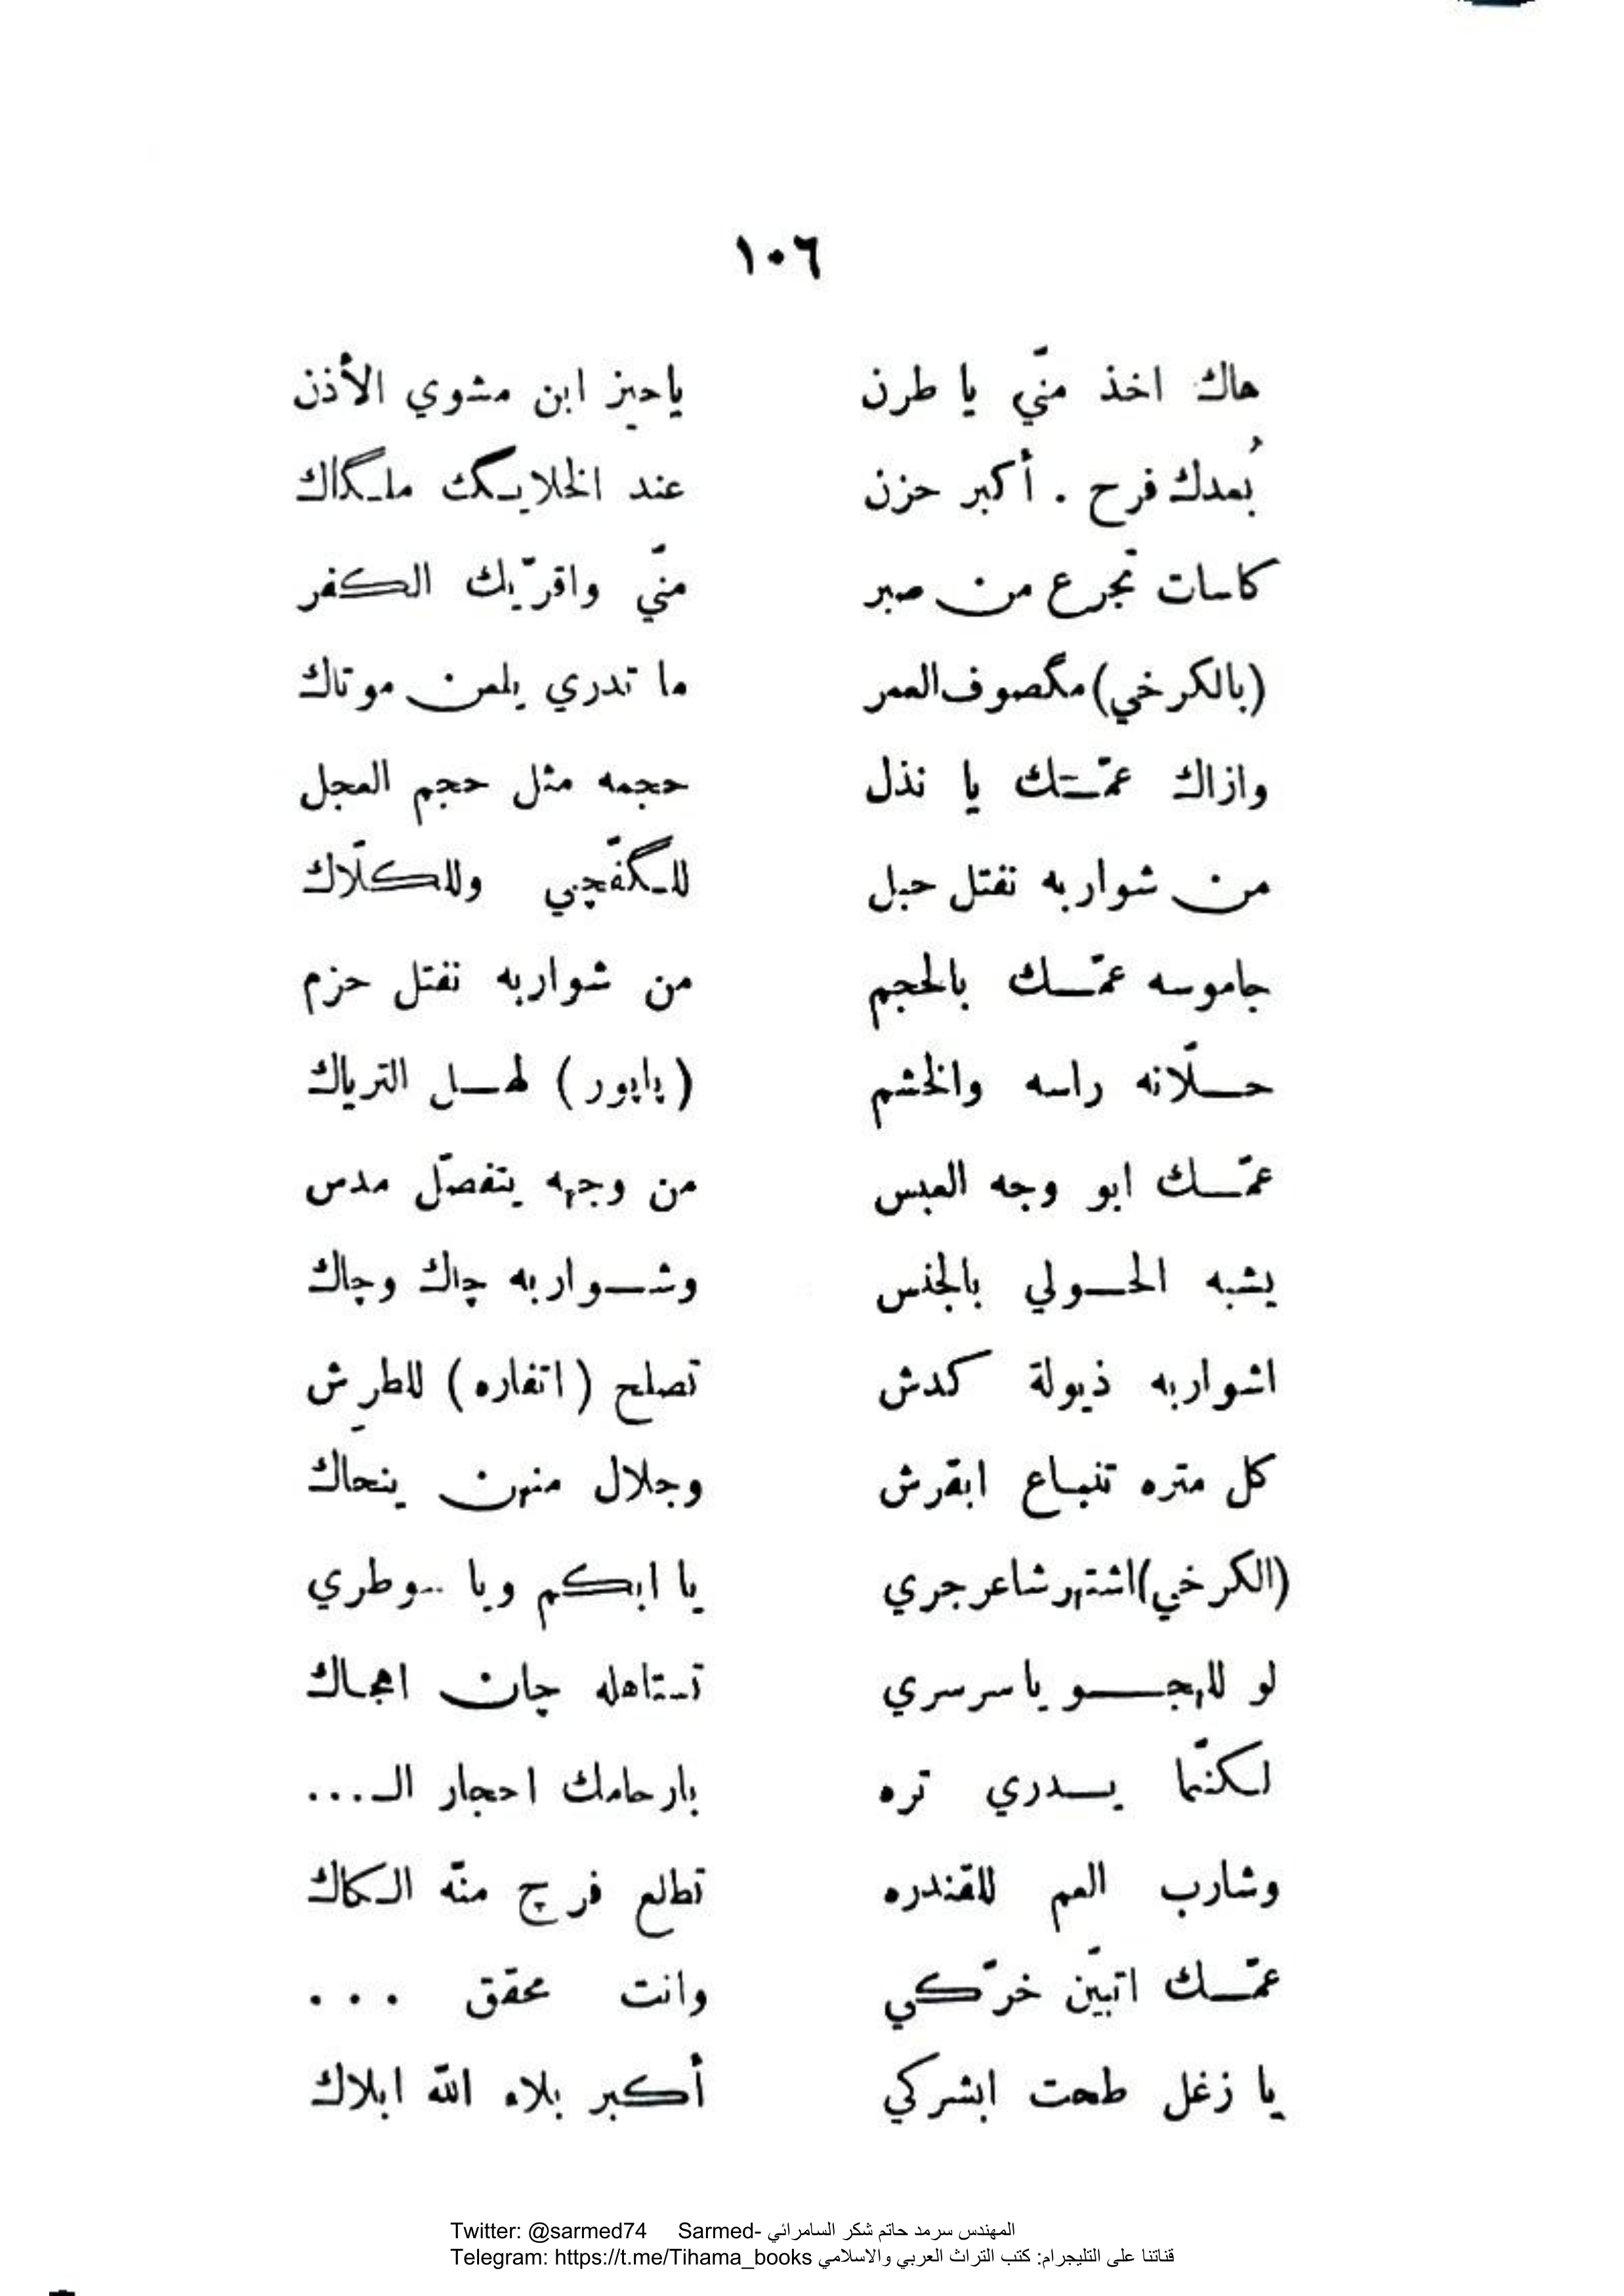 ١٠٦
هاك اخذ منّي يا طرن ياحيز ابن مشوي الأذن
بُعدك فرح . أكبر حزن عند الخلايـگ ملـگاك
كاسات تجرع من صبر منّي واقرّيك الكفر
(بالكرخي) مگصوف العمر ما تدري يلعن موتاك
وازاك عمّـتك يا نذل حجمه مثل حجم العجل
من شواربه نفتل حبل للـگفّچي وللكلّاك
جاموسه عمّـك بالحجم من شواربه نفتل حزم
حـلّانه راسه والخشم (پاپور) لهـل الترياك
عمّـك ابو وجه العبس من وجهه يتفصّل مدس
يشبه الحـولي بالجنس وشـواربه چاك وچاك
اشواربه ذيولة كدش تصلح (اتفاره) للطرش
كل متره تنبـاع ابقرش وجلال منهن ينحاك
(الكرخي) اشتهر شاعر جري يا ابكم ويا ..وطري
لو للهجـو يا سرسري تستاهله چان اهجاك
لكنّما يـدري تره بارحامك احجار الـ...
وشارب العم للقندره تطلع فرچ منّه الـكاك
عمّـك اتبيّن خرّكي وانت محقق ...
يا زغل طحت ابشركي أكبر بلاء الله ابلاك
Twitter: @sarmed74 Sarmed- المهندس سرمد حاتم شكر السامرائي
Telegram: https://t.me/Tihama_books قناتنا على التليجرام: كتب التراث العربي والاسلامي